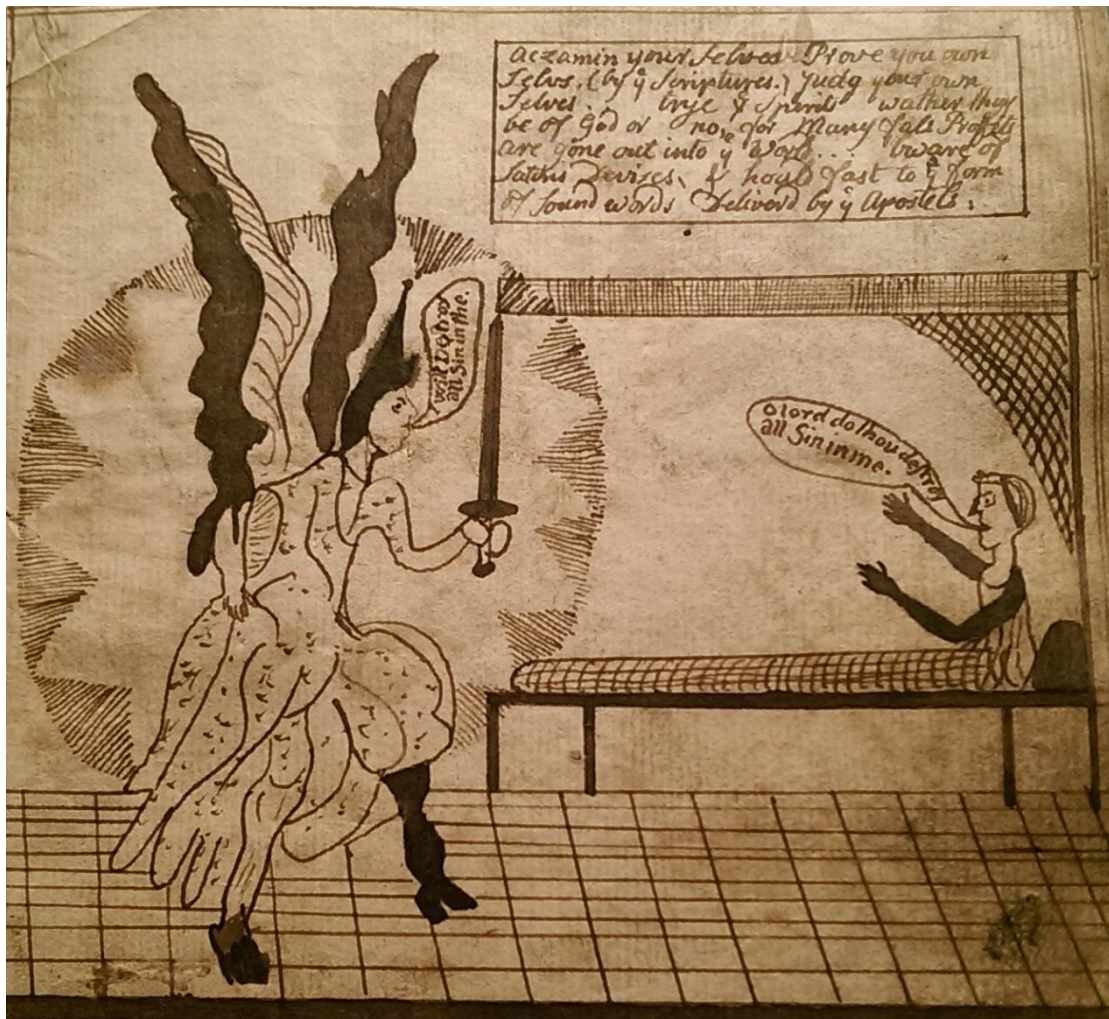 aczamin your Selves Prove you own
Selvs. (by ẙ Scriptures.) Judg your own
Selves. trye ẙ Spirit wather they
be of God or no, for Many fals Proffits
are gone out into ẙ World.... bware of
Satins Devises, & hould fast to ẙ form
of sound words Deliverd by ẙ Apostels:
I will Distroy
all Sin in the.
O lord do thou destroy
all Sin in me.